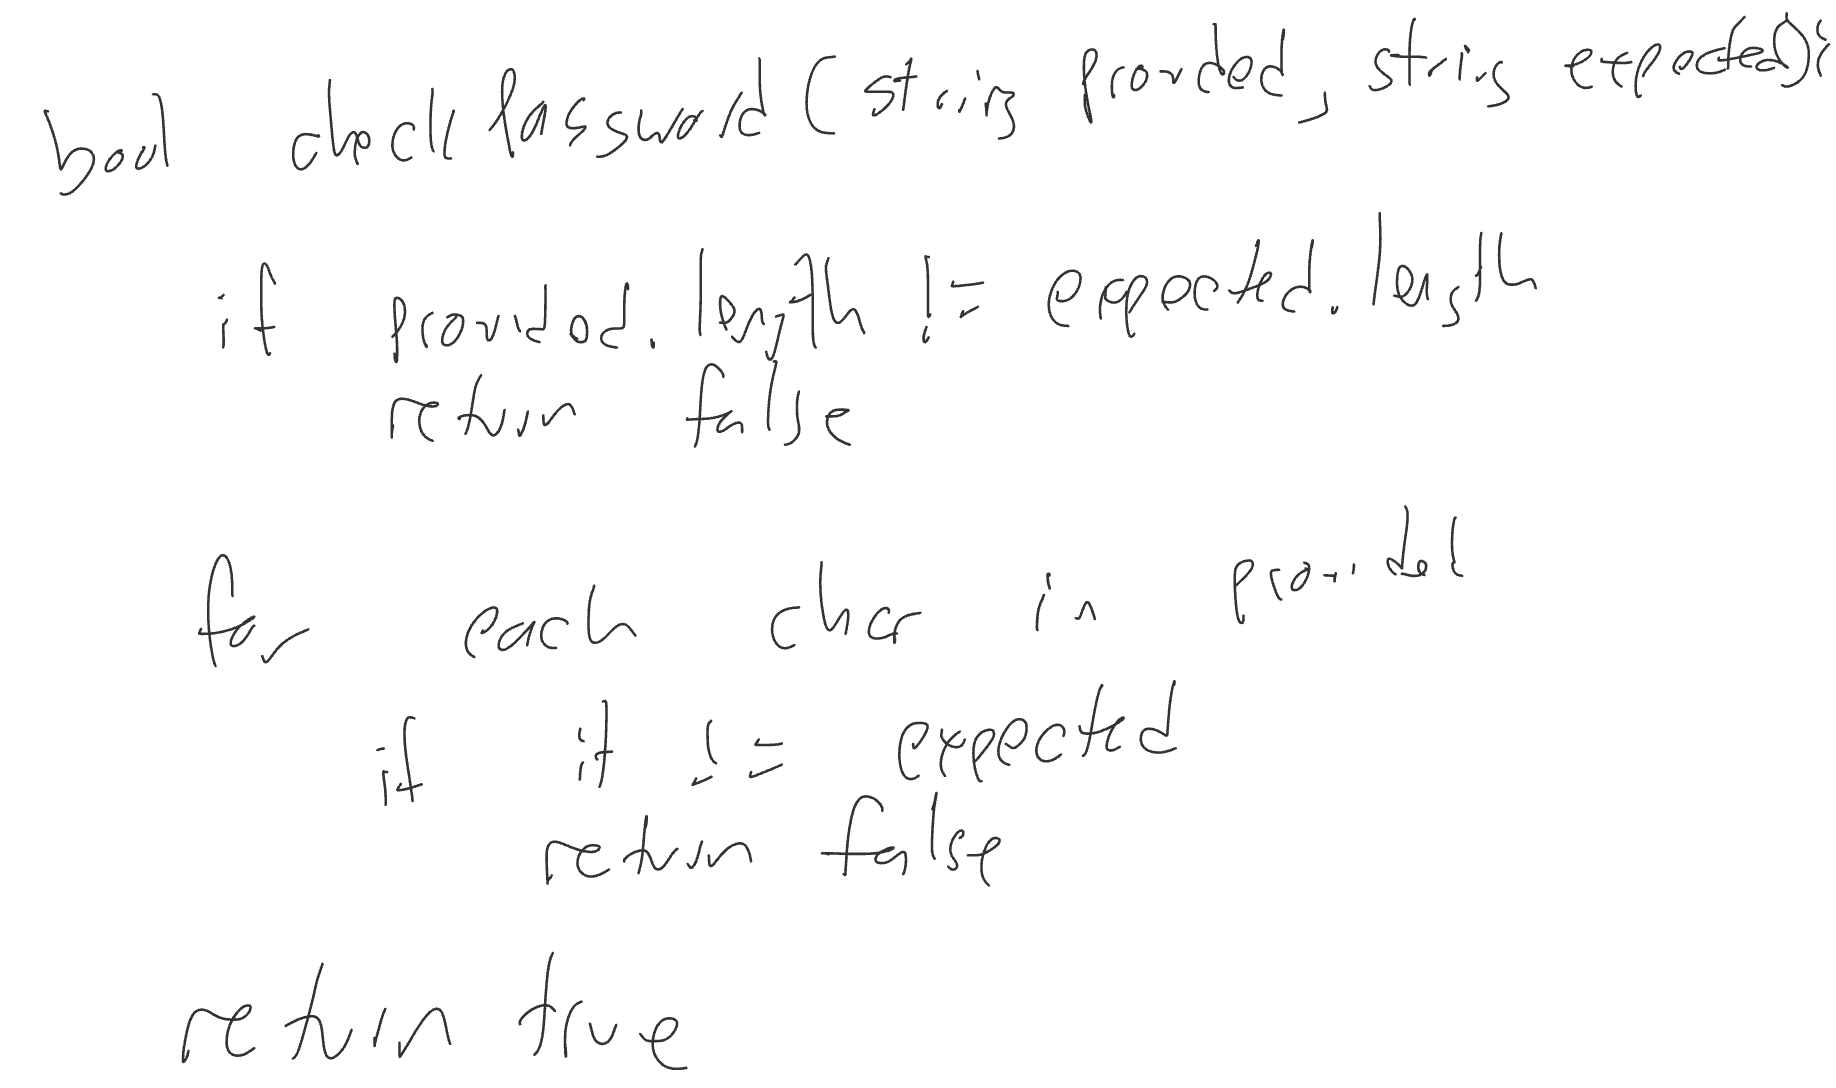 bool checkPassword(string provided, string expected):
if provided.length != expected.length
return false
for each char in provided
if it != expected
return false
return true